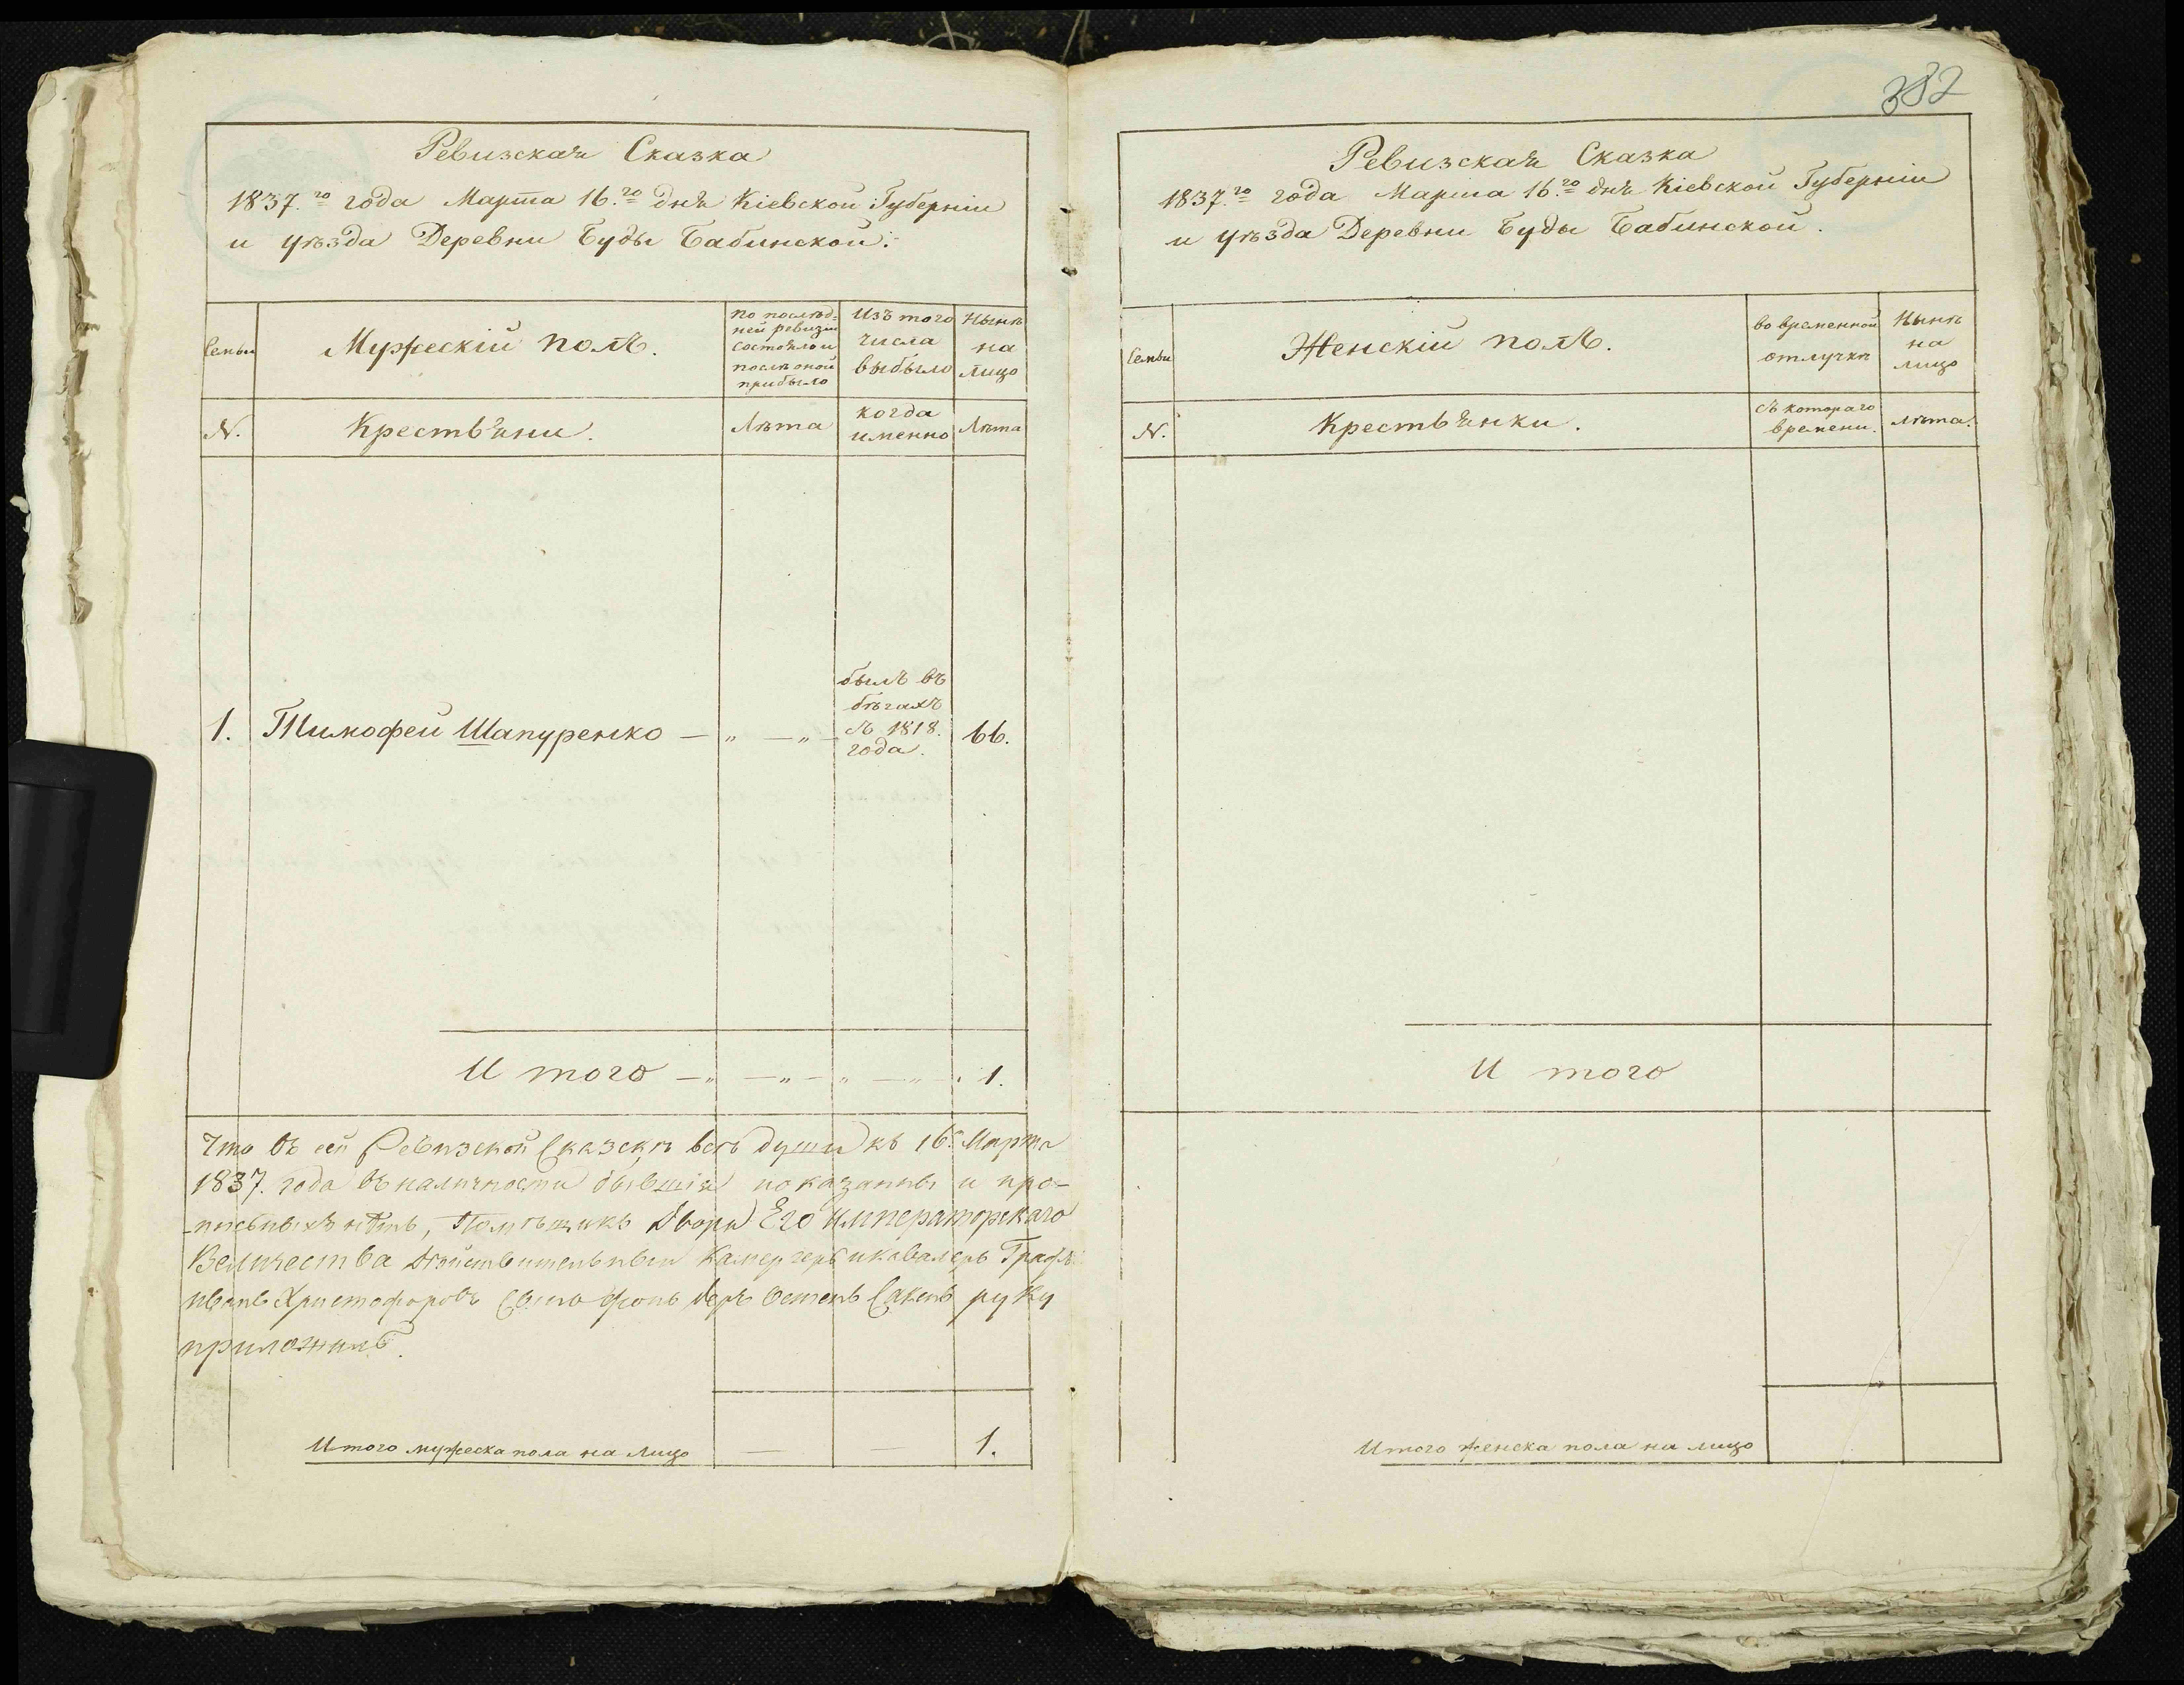 Ревизская Сказка
1837.го года Марта 16.го дня Кіевской Губерніи
и уѣзда Деревни Буды Бабинской.
Семьи
Мужескій полъ.
по послѣд=
ней ревизіи
состояло и
послѣ оной
прибыло
Изъ того
числа
выбыло
Нынѣ
на
лицо
N.
Крестьяни.
Лѣта
когда
именно
Лѣта
1. Тимофей Шапуренко — „ — „ —
былъ въ
бѣгахъ
съ 1818.
года.
66.
И того — „ — „ — „ — „ 1.
Что въ сей Ревизской Сказкѣ всѣ души къ 16. Марта
1837. года въ наличности бывшія показанны и про-
-писныхъ нѣтъ, Помѣщикъ Двора Его Императорскаго
Величества Дѣйствительный Камергеръ и кавалеръ Графъ
Иванъ Христофоровъ Сынъ фонъ деръ Остенъ Сакенъ руку
приложилъ.
Итого мужеска пола на лицо — — 1.
382
Ревизская Сказка
1837.го года Марта 16.го дня Кіевской Губерніи
и уѣзда Деревни Буды Бабинской.
Семьи
Женскій полъ.
во временной
отлучкѣ
Нынѣ
на
лицо
N.
Крестьянки.
съ котораго
времени.
лѣта.
И того
Итого женска пола на лицо